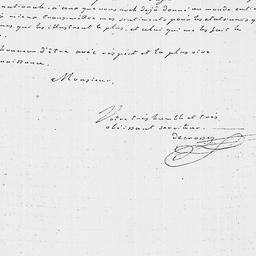 nationale. à eux que vous avez déjà donné au monde enti
mieux transmettre mes sentiments pour les
qui les illustrent le plus, et celui qui me les fait le
honneur d'être avec respect et la plus vive
naissance.
Monsieur,
Votre très humble et très
obéissant serviteur.
decrosses